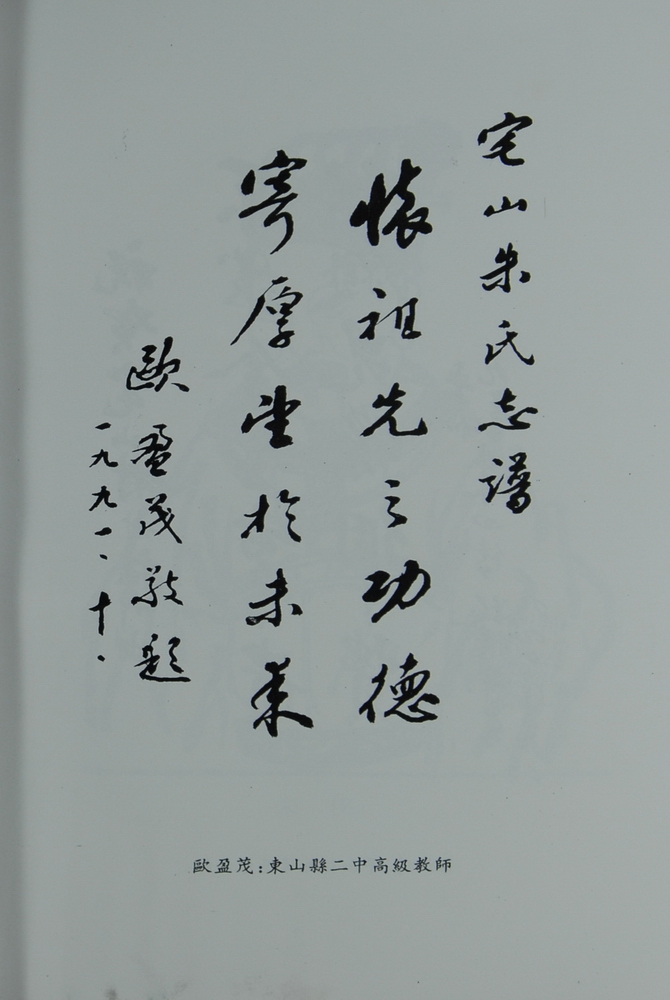 宅山朱氏志譜
懷祖先之功德
寄厚望於未來
歐盈茂敬題
一九九一、十、
歐盈茂:東山縣二中高級教師